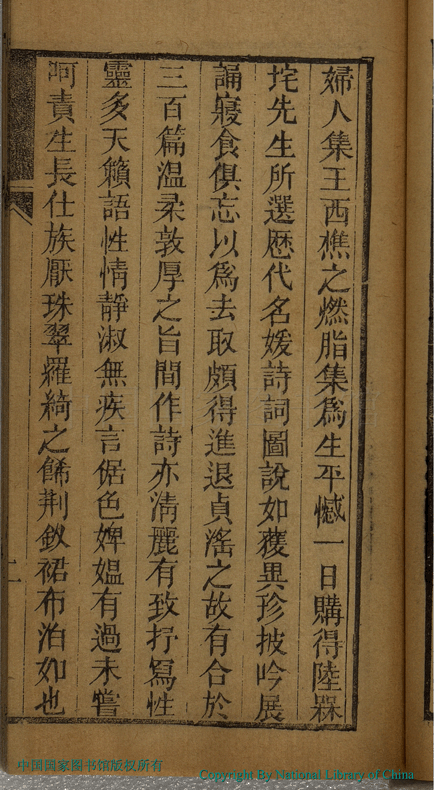 婦人集王西樵之燃脂集為生平憾一日購得陸槑
垞先生所選歷代名媛詩詞圖說如獲異珍披吟展
誦寢食俱忘以為去取頗得進退貞滛之故有合於
三百篇溫柔敦厚之旨間作詩亦淸麗有致抒寫性
靈多天籟語性情靜淑無疾言倨色婢媼有過未嘗
訶責生長仕族厭珠翠羅綺之餙荆釵裙布泊如也
二
中国国家图书馆版权所有
Copyright By National Library of China